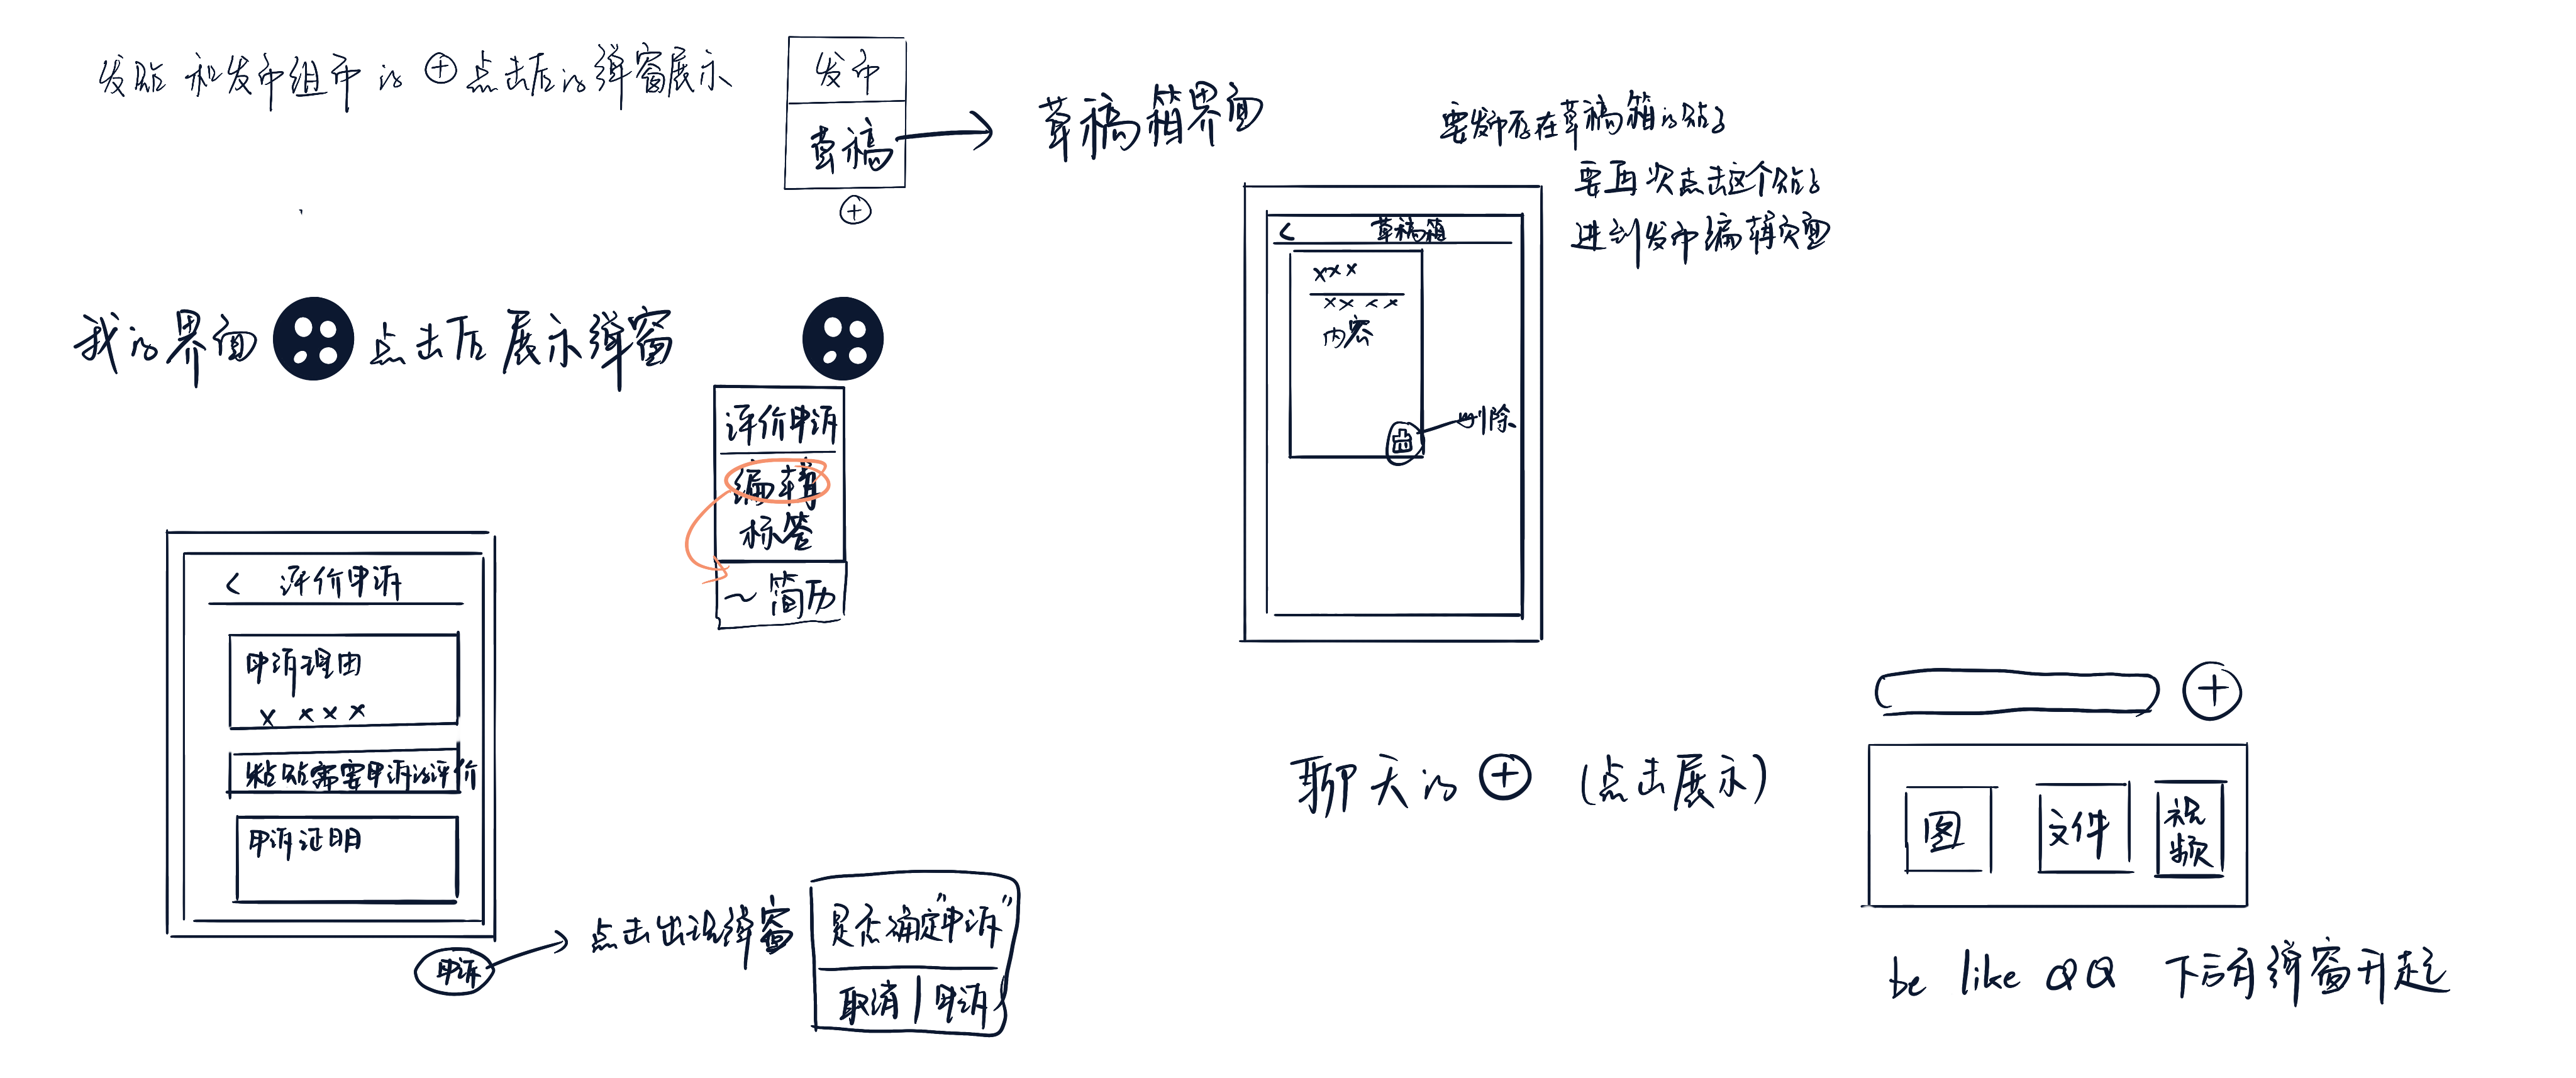 发贴 和发布组中 的 ⊕ 点击后的弹窗展示
发布
草稿
草稿箱界面
要发布存在草稿箱的贴子
要再次点击这个贴子
进到发布编辑页面
< 草稿箱
xxx
xxxx
内容
删除
我的界面 点击后 展示弹窗
评价申诉
编辑
标签
~ 简历
< 评价申诉
申诉理由
x x x x
粘贴需要申诉的评价
申诉证明
申诉
点击出现弹窗
是否确定"申诉"
取消 | 申诉
聊天的 ⊕ (点击展示)
图
文件
视
频
be like QQ 下后有弹窗升起